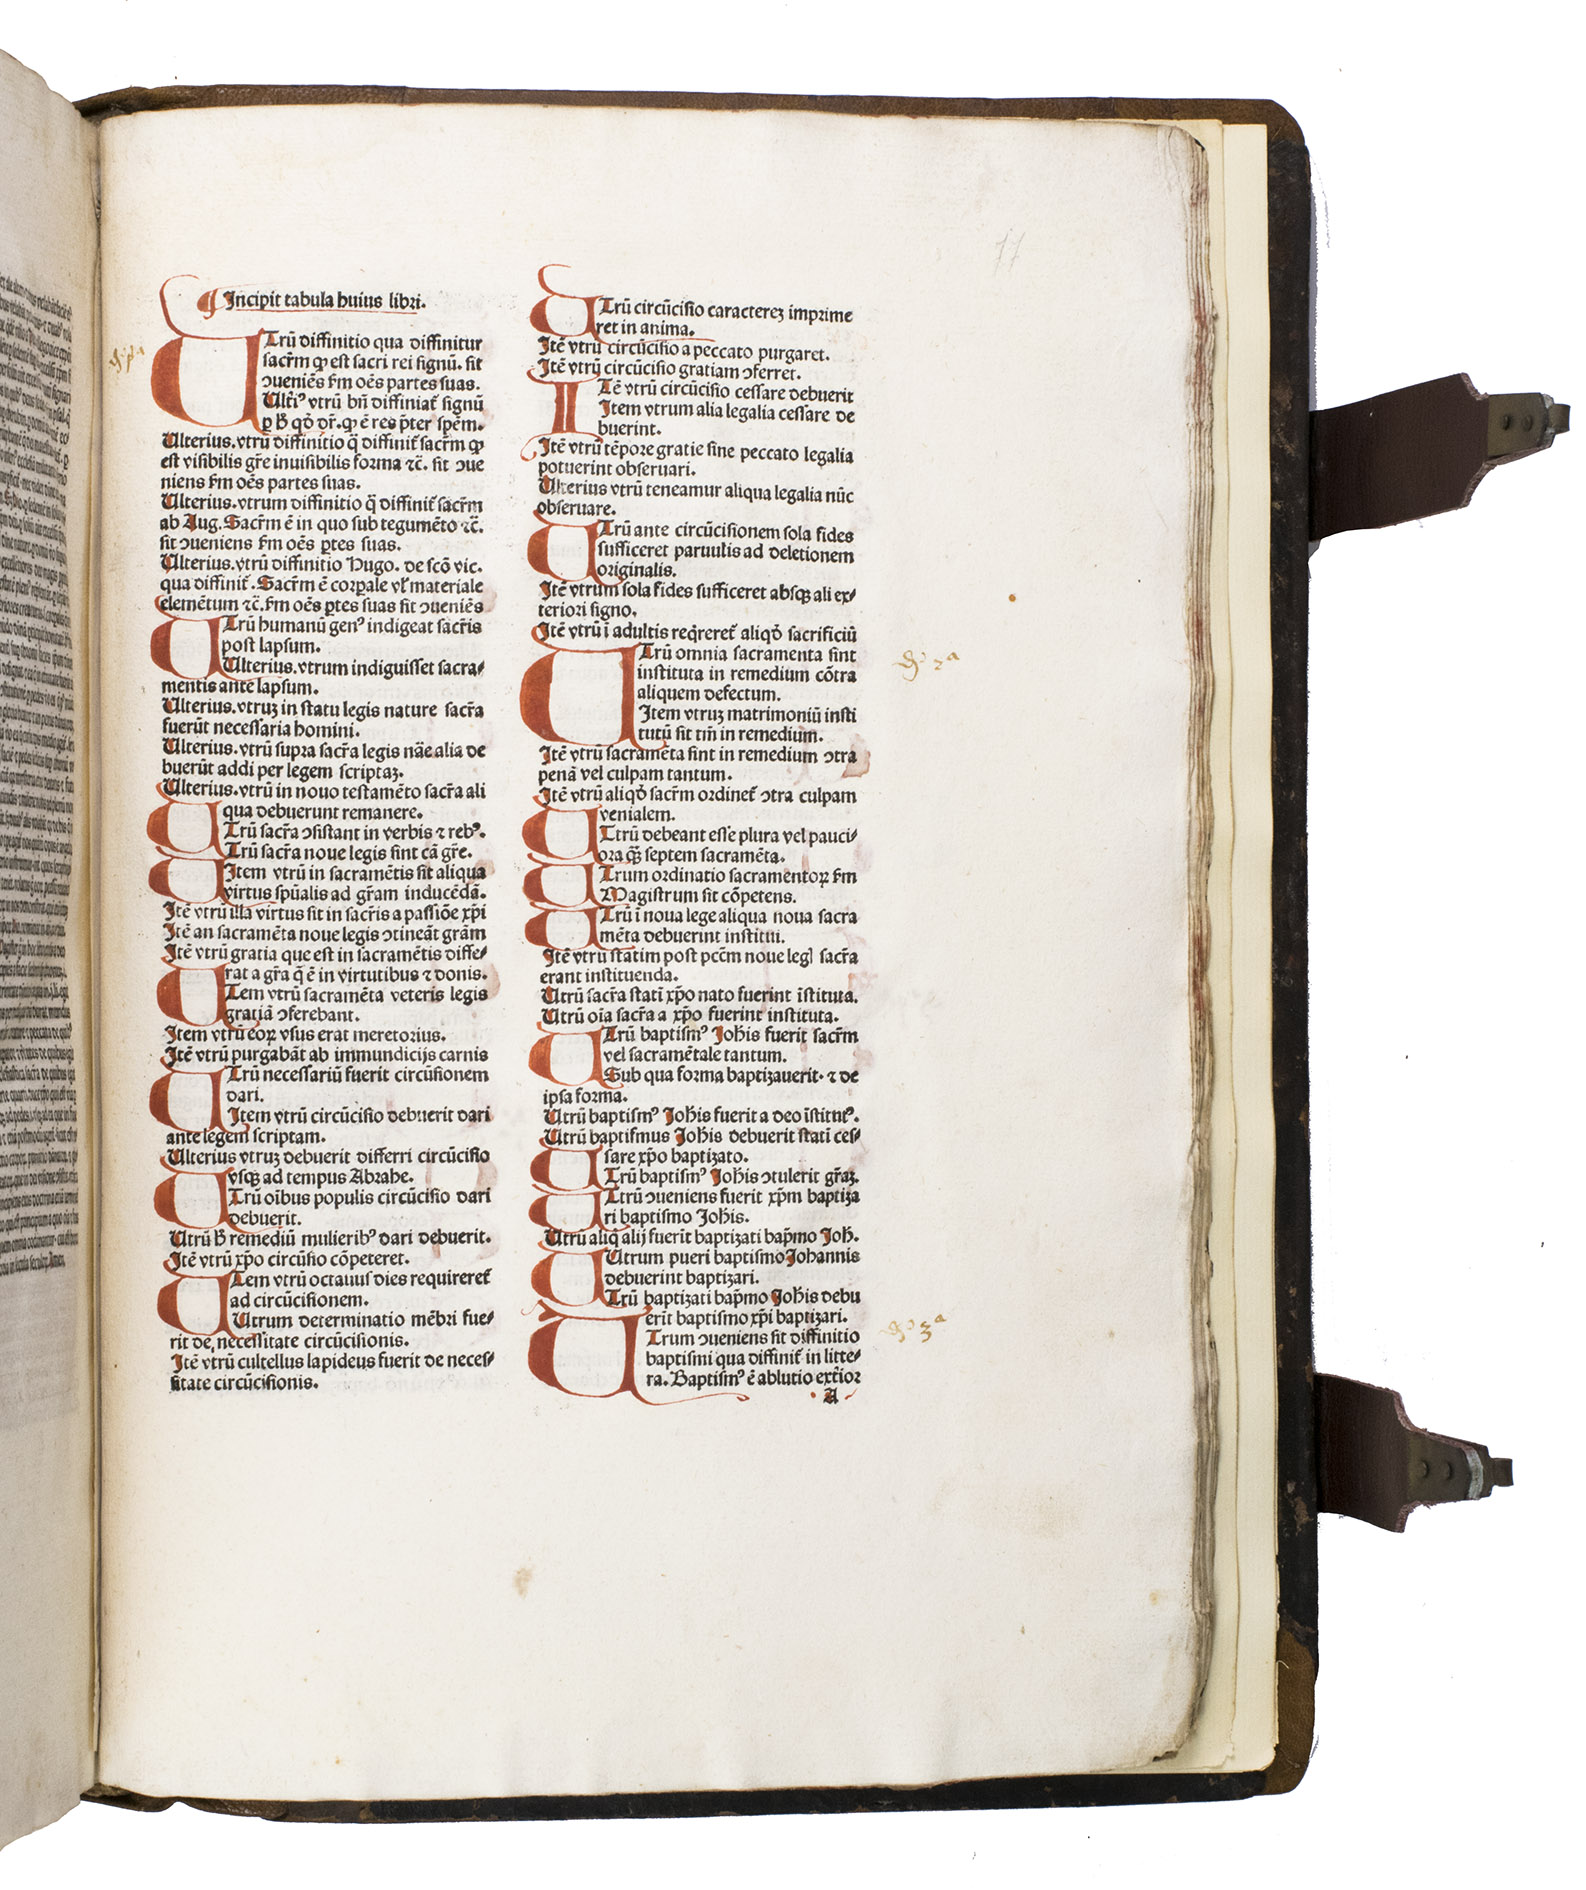 ¶ Incipit tabula huius libri.
Utrũ diffinitio qua diffinitur
sacr̃m ꝙ est sacri rei signũ. sit
ꝯueniẽs ẞm oẽs partes suas.
Ulti⁹ vtrũ bñ diffiniat̃ signũ
Ulterius. vtrũ diffinitio q̃ diffinit̃ sacr̃m ꝙ
est visibilis gr̃e inuisibilis forma ⁊c̃. sit ꝯue
niens ẞm oẽs partes suas.
Ulterius. vtrum diffinitio q̃ diffinit̃ sacr̃m
ab Aug. Sacr̃m ẽ in quo sub tegumẽto ⁊c̃.
sit ꝯueniens ẞm oẽs ꝑtes suas.
Ulterius. vtrũ diffinitio Hugo. de scõ vic.
qua diffinit̃. Sacr̃m ẽ corꝑale vl̃ materiale
elemẽtum ⁊c̃. ẞm oẽs ꝑtes suas sit ꝯueniẽs
Utrũ humanũ gen⁹ indigeat sacr̃is
post lapsum.
Ulterius. vtrum indiguisset sacra⸗
mentis ante lapsum.
Ulterius. vtruꝫ in statu legis nature sacr̃a
fuerũt necessaria homini.
Ulterius. vtrũ supra sacr̃a legis nãe alia de
buerũt addi per legem scriptaꝫ.
Ulterius. vtrũ in nouo testamẽto sacr̃a ali
qua debuerunt remanere.
Utrũ sacr̃a ꝯsistant in verbis ⁊ reb⁹.
Utrũ sacr̃a noue legis sint cã gr̃e.
Item vtrũ in sacramẽtis sit aliqua
virtus spũalis ad gr̃am inducẽdã.
Itẽ vtrũ illa virtus sit in sacr̃is a passiõe xp̃i
Itẽ an sacramẽta noue legis ꝯtineãt grãm
Itẽ vtrũ gratia que est in sacramẽtis diffe⸗
rat a gr̃a q̃ ẽ in virtutibus ⁊ donis.
Item vtrũ sacramẽta veteris legis
gratiã ꝯferebant.
Item vtrũ eoꝝ vsus erat meretorius.
Itẽ vtrũ purgabãt ab immundicijs carnis
Utrũ necessariũ fuerit circũsionem
dari.
Item vtrũ circũcisio debuerit dari
ante legem scriptam.
Ulterius vtruꝫ debuerit differri circũcisio
vsqꝫ ad tempus Abrahe.
Utrũ oĩbus populis circũcisio dari
debuerit.
Utrũ h̃ remediũ mulierib⁹ dari debuerit.
Itẽ vtrũ xp̃o circũsio cõpeteret.
Item vtrũ octauus dies requireret̃
ad circũcisionem.
Utrum determinatio mẽbri fue⸗
rit de necessitate circũcisionis.
Itẽ vtrũ cultellus lapideus fuerit de neces⸗
sitate circũcisionis.
Utrũ circũcisio caractereꝫ imprime
ret in anima.
Itẽ vtrũ circũcisio a peccato purgaret.
Itẽ vtrũ circũcisio gratiam ꝯferret.
Itẽ vtrũ circũcisio cessare debuerit
Item vtrum alia legalia cessare de
buerint.
Itẽ vtrũ tẽpore gratie sine peccato legalia
potuerint obseruari.
Ulterius vtrũ teneamur aliqua legalia nũc
obseruare.
Utrũ ante circũcisionem sola fides
sufficeret paruulis ad deletionem
originalis.
Itẽ vtrum sola fides sufficeret absqꝫ ali ex⸗
teriori signo.
Itẽ vtrũ ĩ adultis req̃reret̃ aliqd̃ sacrificiũ
Utrũ omnia sacramenta sint
instituta in remedium cõtra
aliquem defectum.
Item vtruꝫ matrimoniũ insti
tutũ sit tm̃ in remedium.
Itẽ vtrũ sacramẽta sint in remedium ꝯtra
penã vel culpam tantum.
Itẽ vtrũ aliqd̃ sacr̃m ordinet̃ ꝯtra culpam
venialem.
Uttrũ debeant esse plura vel pauci⸗
ora q̃ꝫ septem sacramẽta.
Utrum ordinatio sacramentoꝝ ẞm
Magistrum sit cõpetens.
Utrũ ĩ noua lege aliqua noua sacra
mẽta debuerint institui.
Itẽ vtrũ statim post pcc̃m noue leg̃ sacr̃a
erant instituenda.
Utrũ sacr̃a statĩ xp̃o nato fuerint ĩstituta.
Utrũ oĩa sacr̃a a xp̃o fuerint instituta.
Utrũ baptism⁹ Joh̃is fuerit sacr̃m
vel sacramẽtale tantum.
Sub qua forma baptizauerit. ⁊ de
ipsa forma.
Utrũ baptism⁹ Joh̃is fuerit a deo ĩstitut⁹.
Utrũ baptismus Joh̃is debuerit statĩ ces⸗
sare xp̃o baptizato.
Utrũ baptism⁹ Joh̃is ꝯtulerit gr̃aꝫ.
Uttrũ ꝯueniens fuerit xp̃m baptiza
ri baptismo Joh̃is.
Utrũ aliq̃ alij fuerit baptizati bap̃mo Joh̃.
Utrum pueri baptismo Johannis
debuerint baptizari.
Utrũ baptizati bap̃mo Joh̃is debu
erit baptismo xp̃i baptizari.
Utrum ꝯueniens sit diffinitio
baptismi qua diffinit̃ in litte⸗
ra. Baptism⁹ ẽ ablutio ext̃ior
A